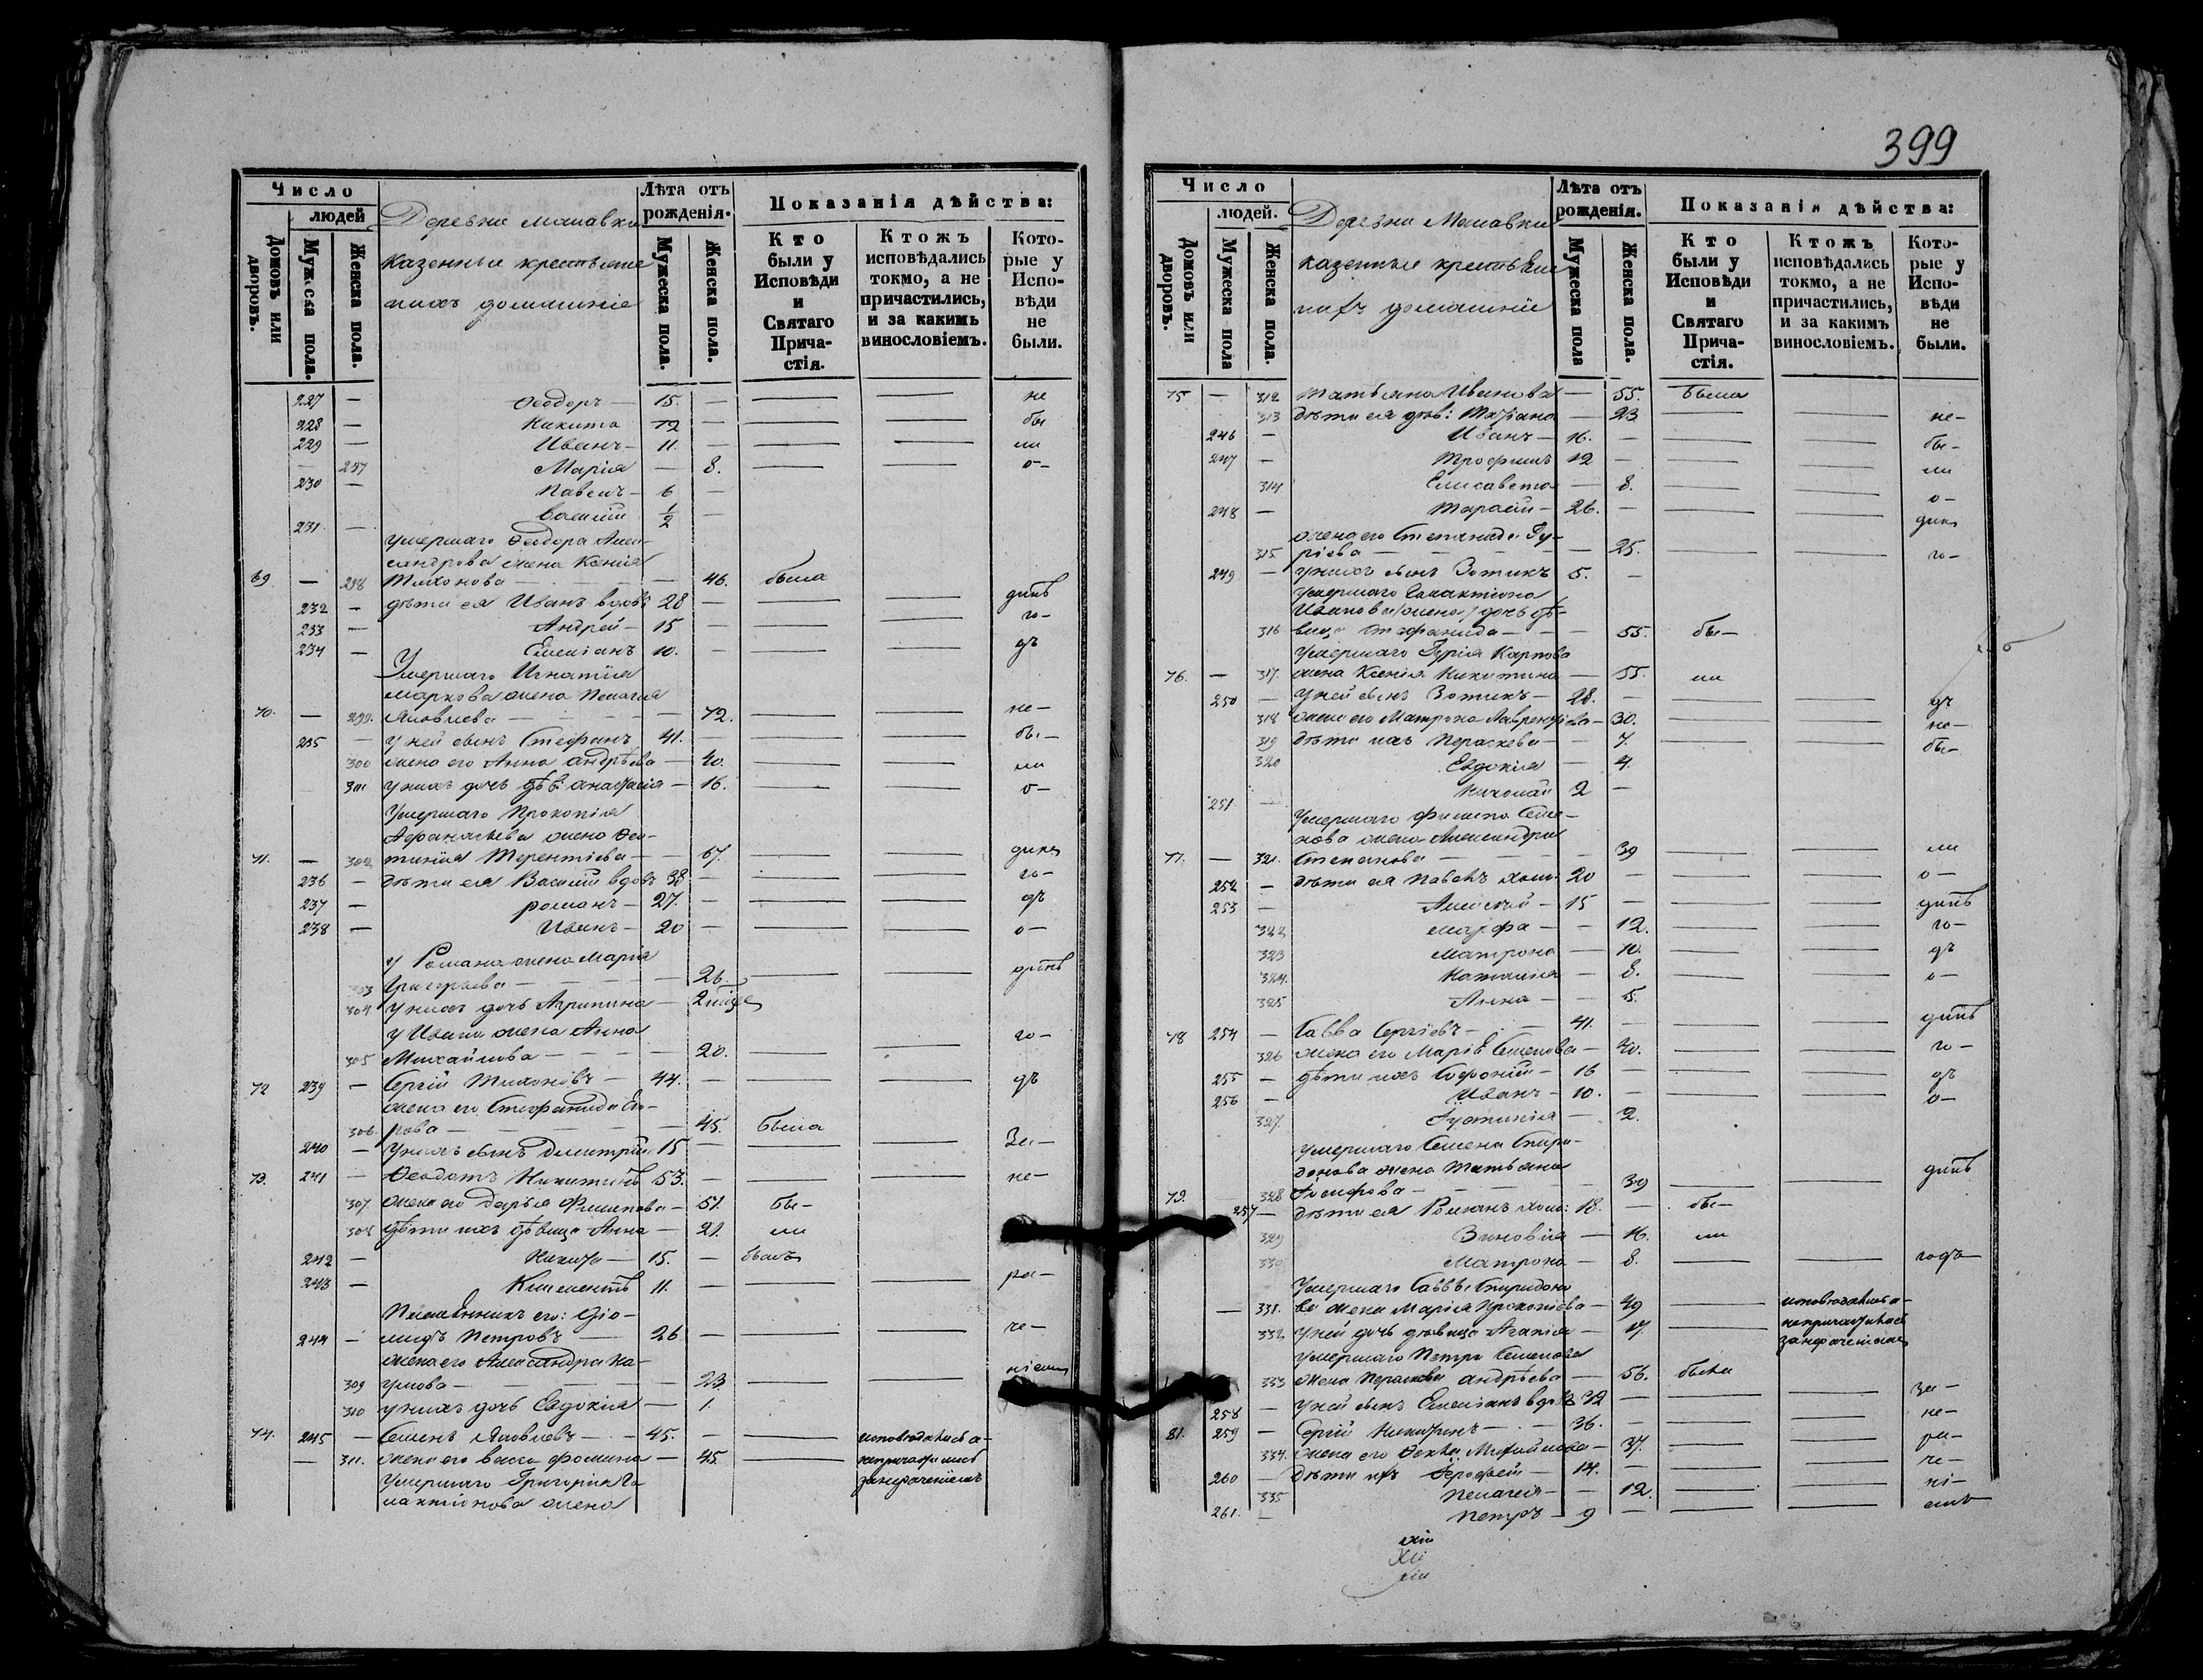 Число
людей
Домовъ или дворовъ.
Мужеска пола.
Женска пола.
Деревни
казенные крестьяне
ихъ домашніе
Лѣта отъ рожденія.
Мужеска пола.
Женска пола.
Показанія дѣйства:
Кто были у Исповѣди и Святаго Прича-стія.
Ктожъ исповѣдались токмо, а не причастились, и за какимъ винословіемъ.
Кото-рые у Испо-вѣди не были.
227 — Ѳеодоръ — 15. — не
228 — Никита 12 — бы
229 — Иванъ — 11. — ли
— 297 Марія — 8. о—
230 — Павелъ — 6 —
231 — Василій ½ —
умершаго Ѳеодора Алек-
сандрова жена Ксенія
69 — 298 Тихонова — 46. была
232 — дѣти ея Иванъ вдовъ 28 — динъ
233 — Андрей — 15 — го—
234 — Емеліанъ 10. — дъ
Умершаго Игнатія
Маркова жена Пелагія
70. — 299. Яковлева — 72. не—
235 — у ней сынъ Стефанъ 41. — бы—
300 жена его Анна Андрѣева — 40. ли
301 у нихъ дочь дѣв: Анастасія — 16. о—
Умершаго Прокопія
Афанасьева жена Ѳео-
71. — 302 Терентіева — 67. динъ
236 — дѣти ея Василій вдовъ 38 — го—
237 — Романъ — 27. — дъ
238 — Иванъ — 20 — о—
у Романа жена Марія
303 Григорьева — 26. динъ
304 у нихъ дочь Агрипина — 2
у Ивана жена Анна
305 Михайлова — 20. го—
72 239 — Сергій Тихоновъ — 44. — дъ
жена его Стефанида
306. — 45. была
240 — у нихъ сынъ Димитрій 15 — За—
73. 241 — Ѳеодотъ Никитинъ 53. — не—
307 жена его Дарья Филипова — 51. бы—
308 дѣти ихъ дѣвица Анна — 21. ли
242 — Никита — 15. — былъ
243 — Климентъ 11. — ра—
Племянникъ его:
244 — Петровъ — 26 — че—
жена его Александра На-
309 умова — 23. ніемъ
310 у нихъ дочь Евдокія — 1.
74. 245 — Семенъ Яковлевъ — 45. — исповѣдались а—
— 311. жена его Васса Фомина — 45 непричастились
Умершаго Григорія Га- занераченіемъ
лактіонова жена
399
Число
людей.
Домовъ или дворовъ.
Мужеска пола
Женска пола.
Деревни
казенные крестьяне
ихъ домашніе
Лѣта отъ рожденія.
Мужеска пола
Женска пола.
Показанія дѣйства:
Кто были у Исповѣди и Святаго Прича-стія.
Ктожъ исповѣдались токмо, а не причастились, и за какимъ винословіемъ.
Кото-рые у Испо-вѣди не были.
75 — 312 Татьяна Иванова — 55. была
313 дѣти ея дѣв: — 23 не—
246 — Иванъ — 16. — бы—
247 — Трофимъ 12 — ли
314 Елисавета — 8. о—
248 — Тарасій — 26. — динъ
жена его Степанида Гу-
315 ріева — 25. го—
249 — у нихъ сынъ Зотикъ 5. —
умершаго Галактіона
Иванова жена дочь дѣ-
316 вица Стефанида — 55. бы—
Умершаго Гурія Карпова
76. — 317. жена Ксенія Никитина — 55. ли
250 — у ней сынъ Зотикъ — 28. — дъ
318 жена его Матрона Лаврентіева — 30. не—
319 дѣти ихъ Параскева — 7. бы—
320 Евдокія — 4.
251 — Николай 2 —
Умершаго Филипа Семе-
нова жена Александра
77. — 321. Степанова — 39 ли
252 — дѣти ея Павелъ холо: 20 — о—
253 — Алексѣй — 15 — динъ
322 Марфа — 12. го—
323 Матрона — 10. дъ
324. Наталия — 8. о—
325 Анна — 5.
78 254 — Савва Сергіевъ — 41. — динъ
326 жена его Марія Семенова — 40. го—
255 — дѣти ихъ Софоній — 16 — дъ
256 — Иванъ — 10. — о—
327. — 2.
умершаго Семена Спири-
донова жена Татьяна
79. 328 Іосифова — 39 динъ
257 — дѣти ея Романъ холо: 18. — бы—
329 Зиновія — 16. ли
330 Матрона — 8. годъ
Умершаго Саввы Спиридоно
— 331. ва жена Марія Прокопіева — 49 исповѣдались а—
332 у ней дочь дѣвица Агапія — 17. непричастились
умершаго Петра Семенова занераченіемъ
333 жена Параскева Андрѣева — 56. была
258 — у ней сынъ Емеліанъ вдовъ 32 — за—
81. 259 — Сергій Никитинъ — 36. — не—
334. жена его Ѳекла Михайлова — 37. ра—
260 — дѣти ихъ — 14. — че—
335 Пелагея — 12. ні—
261. — Петръ — 9 — емъ